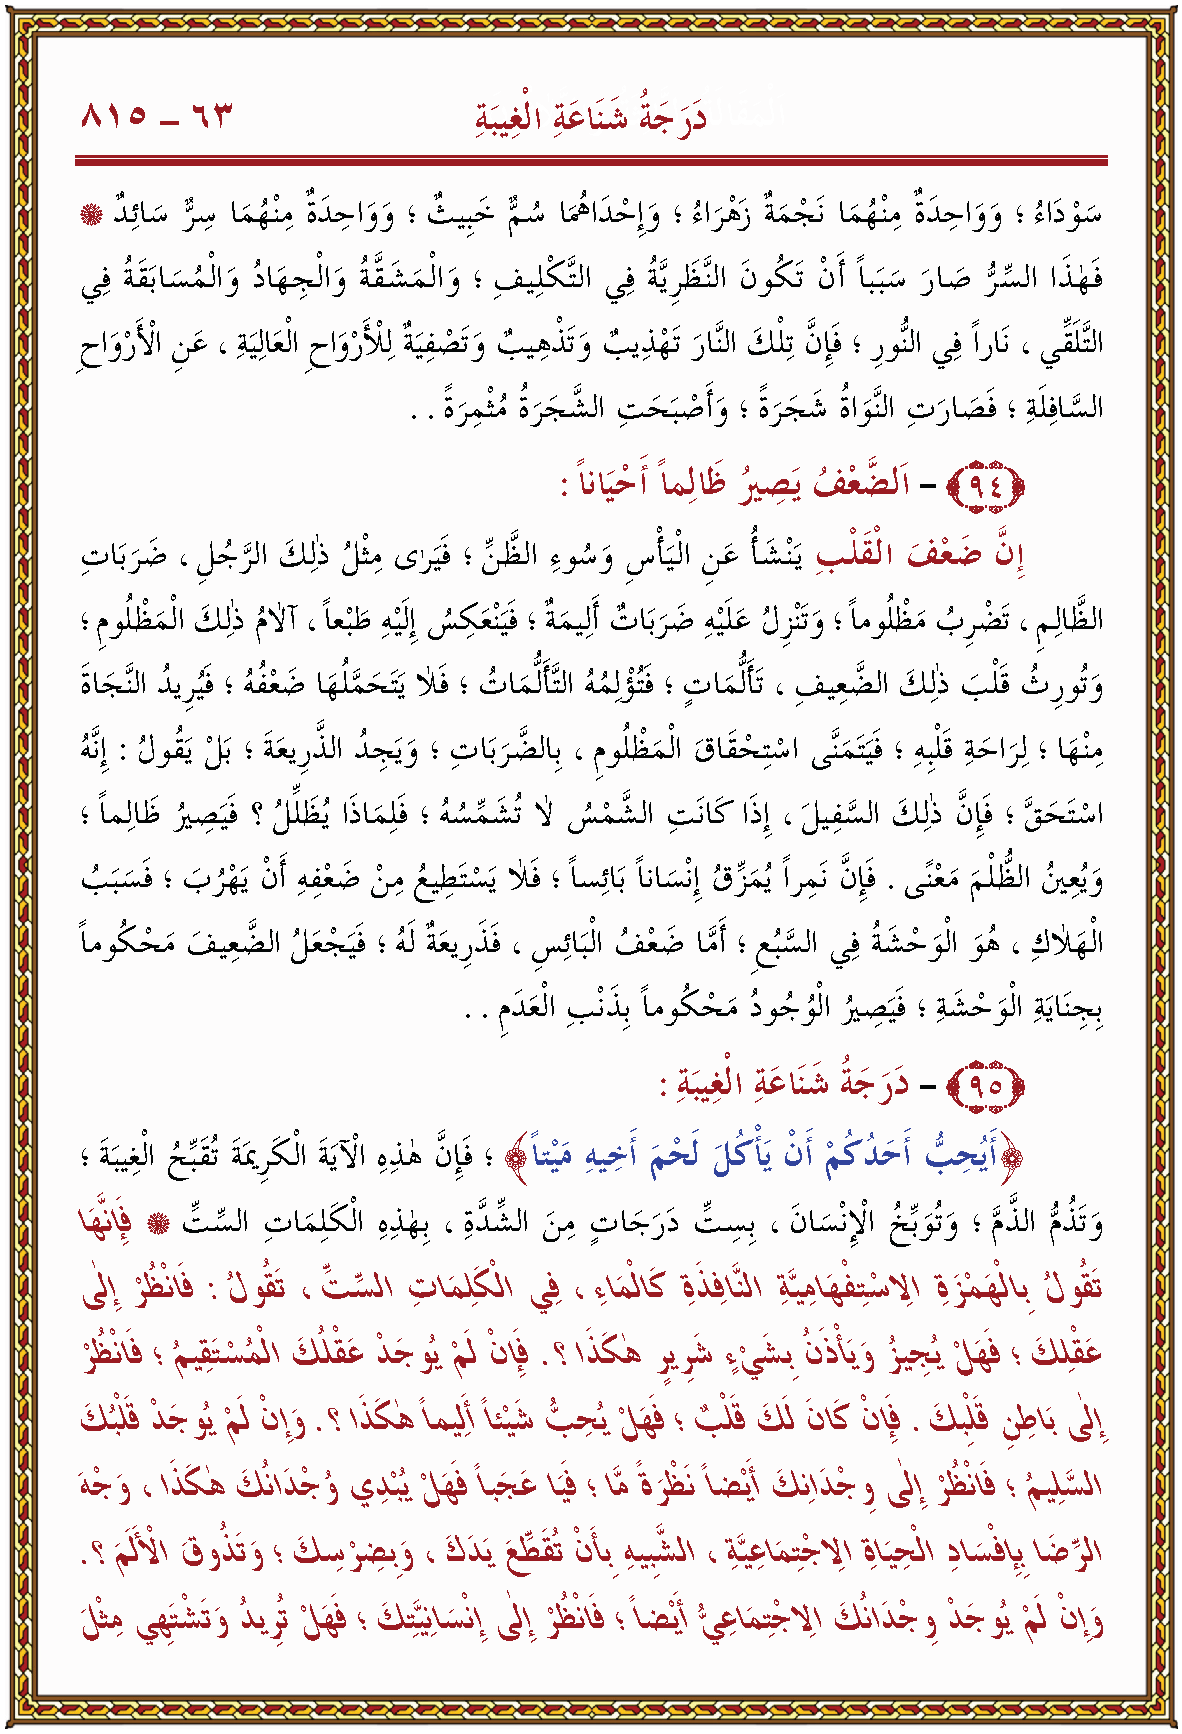 دَرَجَةُ شَنَاعَةِ الْغِيبَةِ ٦٣ ـ ٨١٥
سَوْدَاءُ ؛ وَوَاحِدَةٌ مِنْهُمَا نَجْمَةٌ زَهْرَاءُ ؛ وَإِحْدَاهُمَا سُمٌّ خَبِيثٌ ؛ وَوَاحِدَةٌ مِنْهُمَا سِرٌّ سَائِدٌ
فَهٰذَا السِّرُّ صَارَ سَبَباً أَنْ تَكُونَ النَّظَرِيَّةُ فِي التَّكْلِيفِ ؛ وَالْمَشَقَّةُ وَالْجِهَادُ وَالْمُسَابَقَةُ فِي
التَّلَقِّي ، نَاراً فِي النُّورِ ؛ فَإِنَّ تِلْكَ النَّارَ تَهْذِيبٌ وَتَذْهِيبٌ وَتَصْفِيَةٌ لِلْأَرْوَاحِ الْعَالِيَةِ ، عَنِ الْأَرْوَاحِ
السَّافِلَةِ ؛ فَصَارَتِ النَّوَاةُ شَجَرَةً ؛ وَأَصْبَحَتِ الشَّجَرَةُ مُثْمِرَةً . .
﴿٩٤﴾ – اَلضَّعْفُ يَصِيرُ ظَالِماً أَحْيَاناً :
إِنَّ ضَعْفَ الْقَلْبِ يَنْشَأُ عَنِ الْيَأْسِ وَسُوءِ الظَّنِّ ؛ فَيَرٰى مِثْلُ ذٰلِكَ الرَّجُلِ ، ضَرَبَاتِ
الظَّالِمِ ، تَضْرِبُ مَظْلُوماً ؛ وَتَنْزِلُ عَلَيْهِ ضَرَبَاتٌ أَلِيمَةٌ ؛ فَيَنْعَكِسُ إِلَيْهِ طَبْعاً ، آلَامُ ذٰلِكَ الْمَظْلُومِ ؛
وَتُورِثُ قَلْبَ ذٰلِكَ الضَّعِيفِ ، تَأَلُّمَاتٍ ؛ فَتُؤْلِمُهُ التَّأَلُّمَاتُ ؛ فَلَا يَتَحَمَّلُهَا ضَعْفُهُ ؛ فَيُرِيدُ النَّجَاةَ
مِنْهَا ؛ لِرَاحَةِ قَلْبِهِ ؛ فَيَتَمَنَّى اسْتِحْقَاقَ الْمَظْلُومِ ، بِالضَّرَبَاتِ ؛ وَيَجِدُ الذَّرِيعَةَ ؛ بَلْ يَقُولُ : إِنَّهُ
اسْتَحَقَّ ؛ فَإِنَّ ذٰلِكَ السَّفِيلَ ، إِذَا كَانَتِ الشَّمْسُ لَا تُشَمِّسُهُ ؛ فَلِمَاذَا يُظَلِّلُ ؟ فَيَصِيرُ ظَالِماً ؛
وَيُعِينُ الظُّلْمَ مَعْنًى . فَإِنَّ نَمِراً يُمَزِّقُ إِنْسَاناً بَائِساً ؛ فَلَا يَسْتَطِيعُ مِنْ ضَعْفِهِ أَنْ يَهْرُبَ ؛ فَسَبَبُ
الْهَلَاكِ ، هُوَ الْوَحْشَةُ فِي السَّبُعِ ؛ أَمَّا ضَعْفُ الْبَائِسِ ، فَذَرِيعَةٌ لَهُ ؛ فَيَجْعَلُ الضَّعِيفَ مَحْكُوماً
بِجِنَايَةِ الْوَحْشَةِ ؛ فَيَصِيرُ الْوُجُودُ مَحْكُوماً بِذَنْبِ الْعَدَمِ . .
﴿٩٥﴾ – دَرَجَةُ شَنَاعَةِ الْغِيبَةِ :
﴿أَيُحِبُّ أَحَدُكُمْ أَنْ يَأْكُلَ لَحْمَ أَخِيهِ مَيْتاً﴾ ؛ فَإِنَّ هٰذِهِ الْآيَةَ الْكَرِيمَةَ تُقَبِّحُ الْغِيبَةَ ؛
وَتَذُمُّ الذَّمَّ ؛ وَتُوَبِّخُ الْإِنْسَانَ ، بِسِتِّ دَرَجَاتٍ مِنَ الشِّدَّةِ ، بِهٰذِهِ الْكَلِمَاتِ السِّتِّ فَإِنَّهَا
تَقُولُ بِالْهَمْزَةِ الْاِسْتِفْهَامِيَّةِ النَّافِذَةِ كَالْمَاءِ ، فِي الْكَلِمَاتِ السِّتِّ ، تَقُولُ : فَانْظُرْ إِلٰى
عَقْلِكَ ؛ فَهَلْ يُجِيزُ وَيَأْذَنُ بِشَيْءٍ شَرِيرٍ هٰكَذَا ؟. فَإِنْ لَمْ يُوجَدْ عَقْلُكَ الْمُسْتَقِيمُ ؛ فَانْظُرْ
إِلٰى بَاطِنِ قَلْبِكَ . فَإِنْ كَانَ لَكَ قَلْبٌ ؛ فَهَلْ يُحِبُّ شَيْئاً أَلِيماً هٰكَذَا ؟. وَإِنْ لَمْ يُوجَدْ قَلْبُكَ
السَّلِيمُ ؛ فَانْظُرْ إِلٰى وِجْدَانِكَ أَيْضاً نَظْرَةً مَّا ؛ فَيَا عَجَباً فَهَلْ يُبْدِي وُجْدَانُكَ هٰكَذَا ، وَجْهَ
الرِّضَا بِإِفْسَادِ الْحِيَاةِ الْاِجْتِمَاعِيَّةِ ، الشَّبِيهِ بِأَنْ تُقَطِّعَ يَدَكَ ، وَبِضِرْسِكَ ؛ وَتَذُوقَ الْأَلَمَ ؟.
وَإِنْ لَمْ يُوجَدْ وِجْدَانُكَ الْاِجْتِمَاعِيُّ أَيْضاً ؛ فَانْظُرْ إِلٰى إِنْسَانِيَّتِكَ ؛ فَهَلْ تُرِيدُ وَتَشْتَهِي مِثْلَ